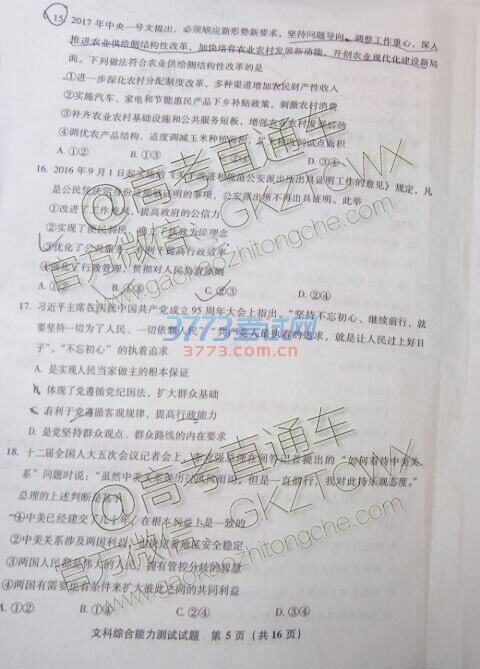 15. 2017 年中央一号文提出，必须顺应新形势新要求，坚持问题导向，调整工作重心，深入
推进农业供给侧结构性改革，加快培育农业农村发展新动能，开创农业现代化建设新局
面。下列做法符合农业供给侧结构性改革的是
①进一步深化农村分配制度改革，多种渠道增加农民财产性收入
②实施汽车、家电和节能惠民产品下乡补贴政策，刺激农村消费
③补齐农业农村基础设施和公共服务短板，增强农业农村发展后劲
④调优农产品结构，适度调减玉米种植面积
A. ①② B. ①③ D. ③④
16. 2016 年 9 月 1 日起实施的《关于改进和规范公安派出所出具证明工作的意见》规定，凡
是公民凭法定身份证件能证明的事项，公安派出所不再出具证明。此举
①改进了工作作风，提高政府的公信力
②实现了便民利民，树立了执政为民理念
③优化了公共服务，有利于提高行政效率
④强化了行政管理，贯彻对人民负责原则
A. ①② B. ①③ C. ②③ D. ②④
17. 习近平主席在庆祝中国共产党成立 95 周年大会上指出，“坚持不忘初心、继续前行，就
要坚持一切为了人民、一切依靠人民”，“共产党人最执着的追求，就是让人民过上好日
子”。“不忘初心”的执着追求
A. 是实现人民当家做主的根本保证
B. 体现了党遵循党纪国法，扩大群众基础
C. 有利于党遵循客观规律，提高行政能力
D. 是党坚持群众观点、群众路线的内在要求
18. 十二届全国人大五次会议记者会上，李克强总理在回答记者提出的“如何看待中美关
系”问题时说：“虽然中美关系历经风风雨雨，但是一直前行，我对此持乐观态度。”
总理的上述判断是基于
①中美已经建交了几十年，在根本利益上是一致的
②中美关系涉及两国利益，也决定着地区安全稳定
③两国人民都是伟大的人民，拥有管控分歧的智慧
④两国有需要也有条件来扩大彼此之间的共同利益
A. ①② B. ①③ C. ②④ D. ③④
文科综合能力测试试题 第 5 页（共 16 页）
@高考直通车
官方微信：GKZTCWX
www.gaokaozhitongche.com
3773考试网
3773.com.cn
@高考直通车
官方微信：GKZTCWX
www.gaokaozhitongche.com